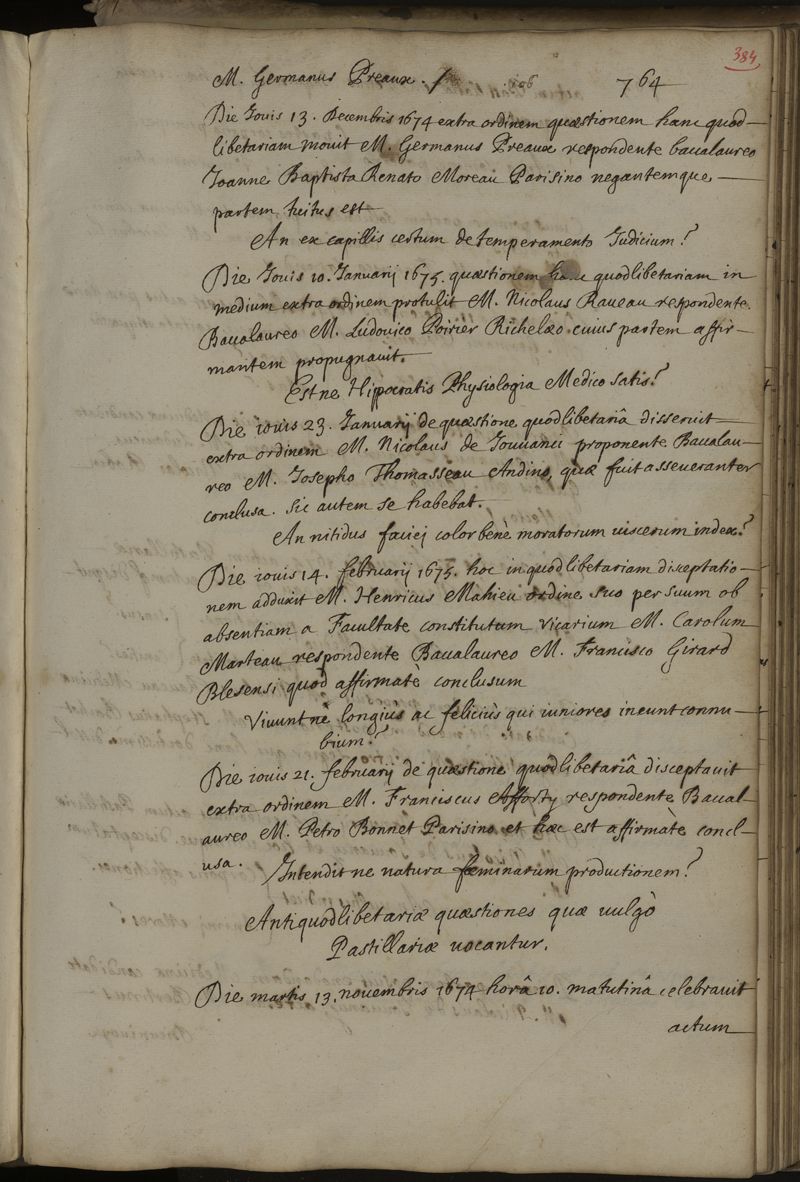 384
M. Germanus Preaux. 764
Die Jouis 13. Decembris 1674 extra ordinem quæstionem hanc quod-
libetariam mouit M. Germanus Preaux respondente baccalaureo
Joanne Baptista Renato Moreau Parisino negantemque
partem tuitus est
An ex capillis certum de temperamento Judicium?
Die Jouis 10. Januarij 1675. quæstionem hanc quodlibetariam in
medium extra ordinem protulit M. Nicolaus Raueau respondente
Baccalaureo M. Ludouico Poirier Richelæo cuius partem affir-
mantem propugnauit.
Est ne Hippocratis Physiologia Medico satis?
Die iouis 23. Januarij de quæstione quodlibetariâ disseruit
extra ordinem M. Nicolaus de Jouuanci proponente Baccalau-
reo M. Josepho Thomasseau Andino, quæ fuit asseueranter
conclusa. sic autem se habebat.
An nitidus faciej color benè moratorum uiscerum index?
Die iouis 14. februarij 1675. hoc in quodlibetariam disceptatio-
nem adduxit M. Henricus Mahieu ordine suo per suum ob
absentiam a Facultate constitutum vicarium M. Carolum
Marteau respondente Baccalaureo M. Francisco Girard
Blesensi quod affirmatè conclusum
Viuunt nè longiùs ac feliciùs qui iuniores ineunt connu-
bium?
Die iouis 21. februarij de quæstione quodlibetariâ disceptauit
extra ordinem M. Franciscus Afforty respondente Baccal-
aureo M. Petro Bonnet Parisino et hæc est affirmatè concl-
usa.
Intendit ne natura fæminarum productionem?
Antiquodlibetariæ quæstiones quæ uulgò
Pastillariæ uocantur.
Die martis 13. nouembris 1674 horâ 10. matutinâ celebrauit
actum